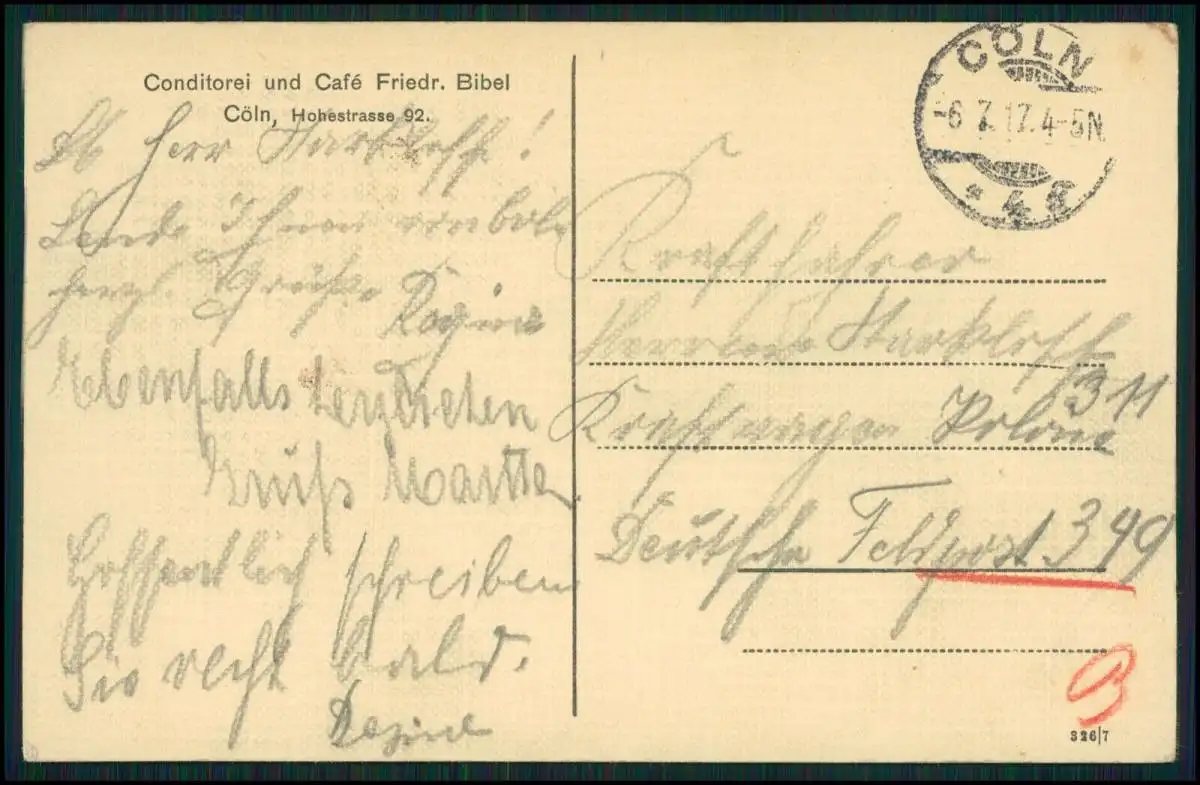 Conditorei und Café Friedr. Bibel
Cöln, Hohestrasse 92.
Lb Herr Starkloff!
Sende Ihnen
herzl. Grüße
Regina
Ebenfalls
Gruß Martha
Hoffentlich schreiben
Sie recht bald.
CÖLN
-6.7.17.4-5N.
* 4 a
Kraftfahrer
Herrn Starkloff
Kraftwagen Kolone 311
Deutsche Feldpost 349
3
326/7